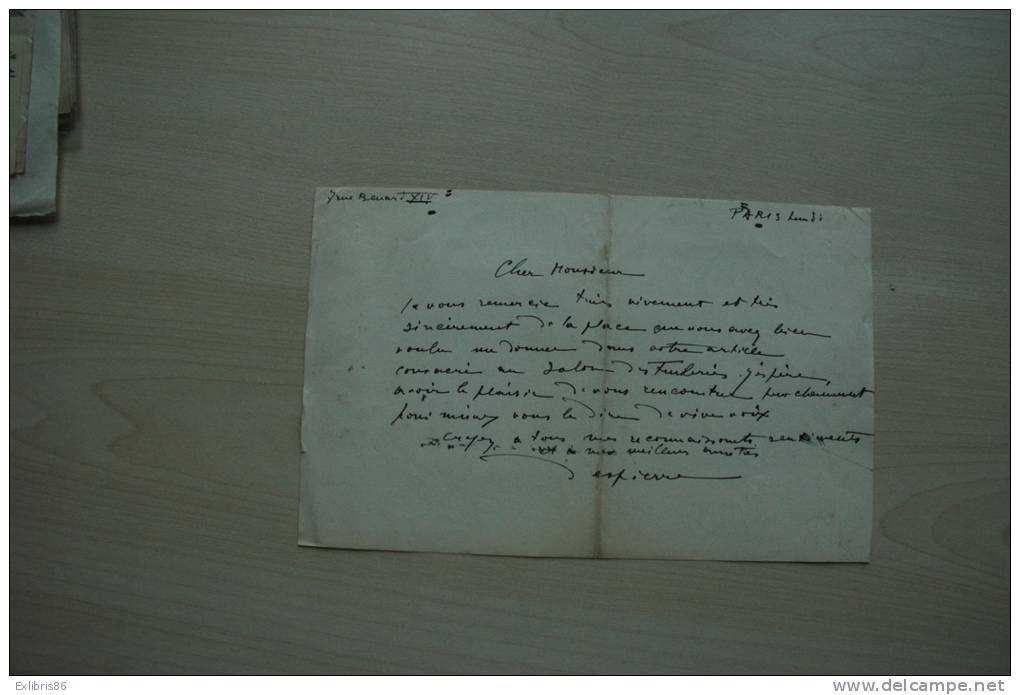 7 rue Benard XIV
PARIS lundi
Cher Monsieur
Je vous remercie très vivement et très
sincèrement de la place que vous avez bien
voulu me donner dans votre article
consacré au Salon des Tuileries. J'espère
avoir le plaisir de vous rencontrer prochainement
pour mieux vous le dire de vive voix
Croyez à tous mes reconnaissants sentiments
à mes meilleurs
Despierre
Exlibris86
www.delcampe.net